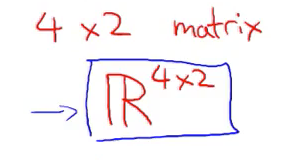 4 x 2 matrix
→ ℝ^{4x2}